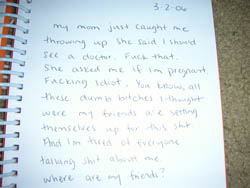 3-2-06
my mom just caught me
throwing up she said I should
see a doctor. Fuck that.
She asked me if im pregnant
Fucking Idiot. You know, all
these dumb bitches I thought
were my friends are setting
themselves up for this shit
And I'm tired of everyone
talking shit about me.
where are my friends?